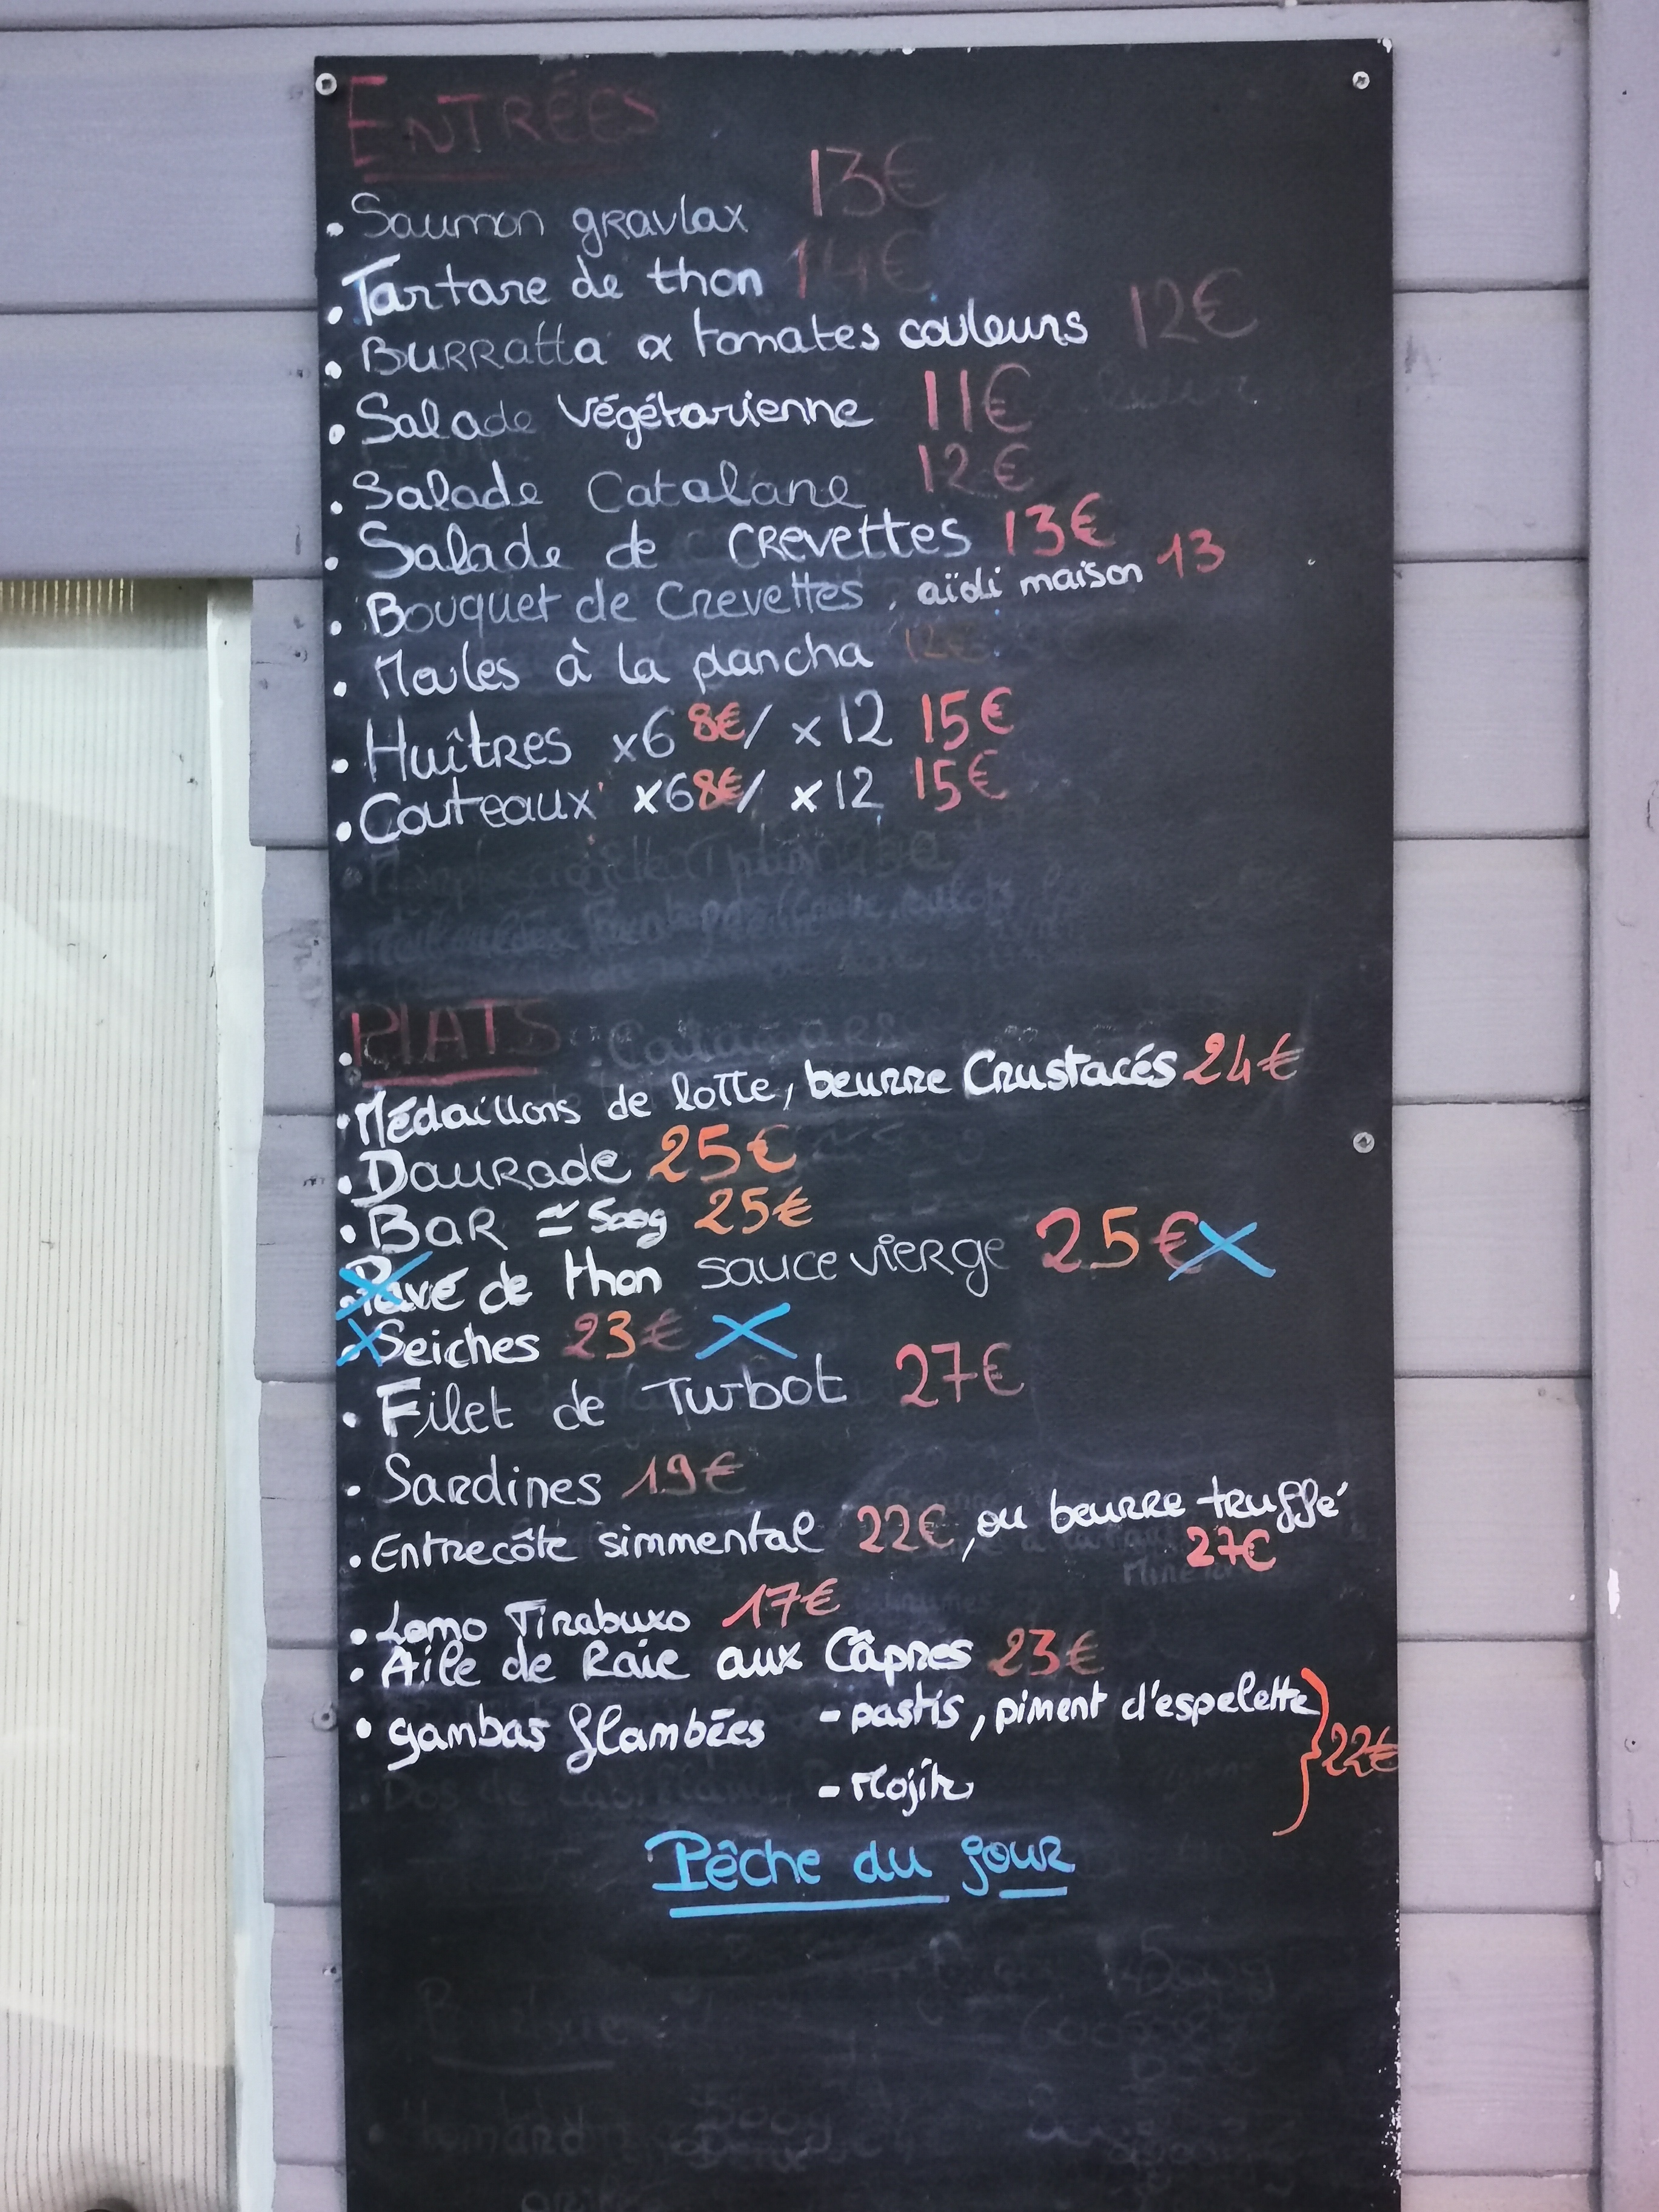 ENTRÉES
. Saumon gravlax 13€
. Tartare de thon 14€
. Burratta & tomates couleurs 12€
. Salade Végétarienne 11€
. Salade Catalane 12€
. Salade de crevettes 13€
. Bouquet de Crevettes, aïoli maison 13
. Moules à la plancha 12€
. Huîtres x6 8€/ x12 15€
. Couteaux x6 8€/ x12 15€
PLATS
. Médaillons de lotte, beurre Crustacés 24€
. Daurade 25€
. BAR ≃ 500g 25€
. Pavé de thon sauce vierge 25€ X
. Seiches 23€ X
. Filet de Turbot 27€
. Sardines 19€
. Entrecôte simmental 22€, ou beurre truffé
27€
. Lomo Tirabuxo 17€
. Aile de Raie aux Câpres 23€
. gambas flambées - pastis, piment d'espelette
22€
- Mojito
Pêche du jour